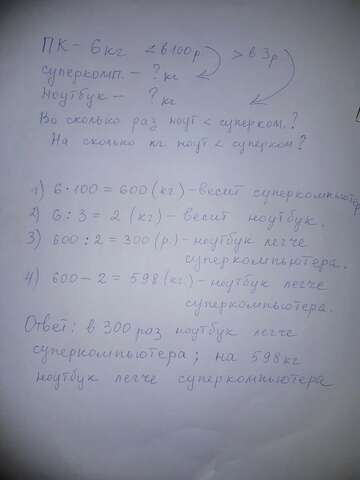 ПК - 6 кг < в 100 р. > в 3 р.
суперкомп. - ? кг
ноутбук - ? кг
Во сколько раз ноут < суперком.?
На сколько кг ноут < суперком?
1) 6·100 = 600 (кг) - весит суперкомпьютер
2) 6 : 3 = 2 (кг) - весит ноутбук.
3) 600 : 2 = 300 (р.) - ноутбук легче
суперкомпьютера.
4) 600 - 2 = 598 (кг.) - ноутбук легче
суперкомпьютера.
Ответ: в 300 раз ноутбук легче
суперкомпьютера; на 598 кг
ноутбук легче суперкомпьютера